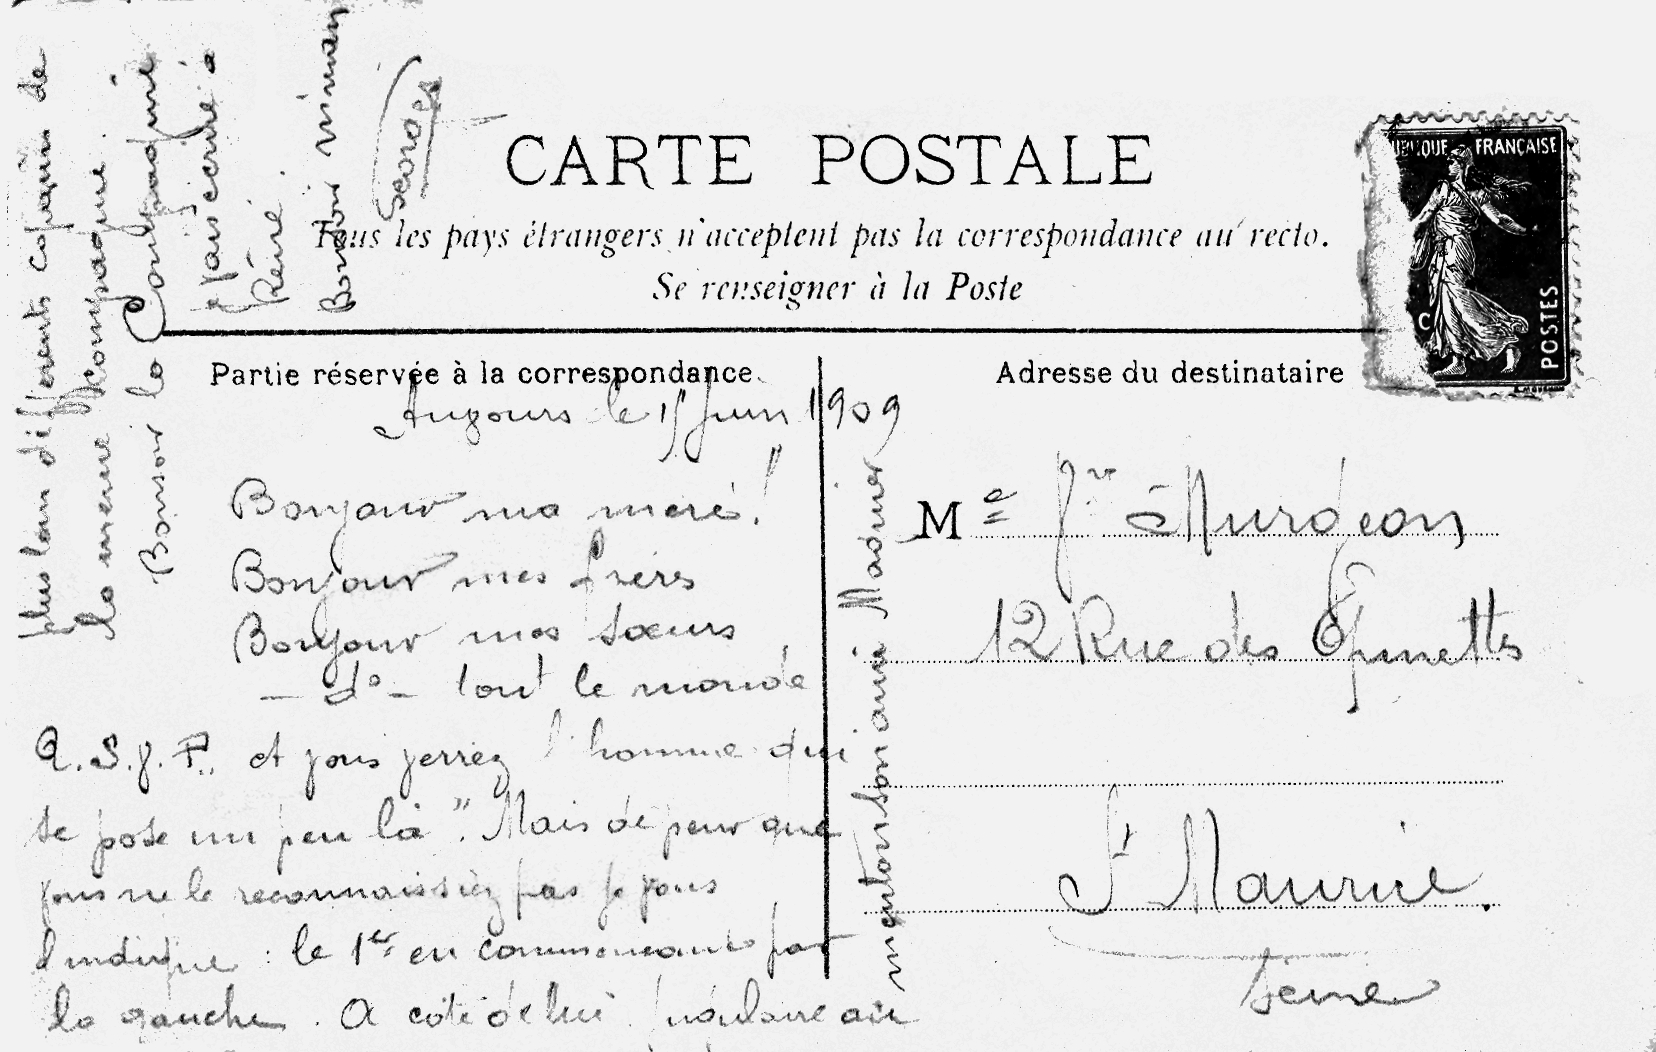 CARTE POSTALE
Tous les pays étrangers n'acceptent pas la correspondance au recto.
Se renseigner à la Poste
RÉPUBLIQUE FRANÇAISE
POSTES
Partie réservée à la correspondance
Adresse du destinataire
le 15 Juin 1909
Bonjour ma mère!
Bonjour mes frères
Bonjour mes sœurs
— do — tout le monde
Q.S.J.P. et vous verrez l'homme qui
se pose un peu là". Mais de peur que
vous ne le reconnaissiez pas je vous
l'indique : le 1er en commencant par
la gauche. A côté de lui
son amie
plus loin différents copains de
la meme compagnie.
Bonsoir la
je vais écrire à
Réné.
Bonsoir
Georges
Me Vve
12 Rue des Epinettes
St Maurice.
Seine